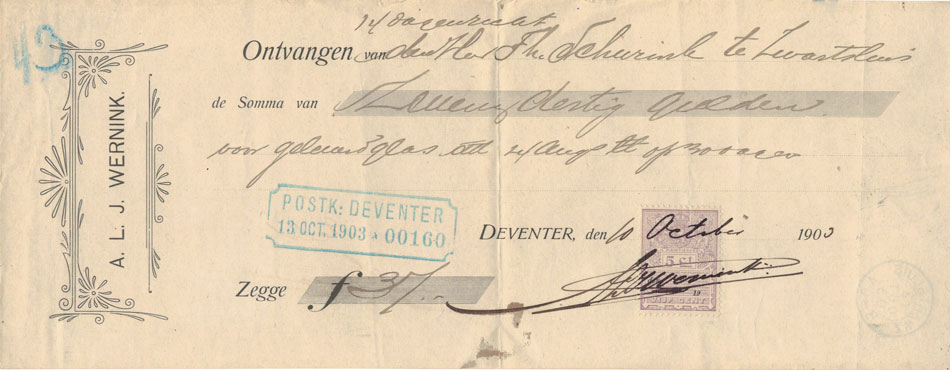 43
A. L. J. WERNINK.
14 dagen zicht
Ontvangen van den Heer Th. Schurink te Zwartsluis
de Somma van Zevenendertig gulden
voor geleverd glas op 30 dagen
POSTK: DEVENTER
13 OCT. 1903 00160
DEVENTER, den 10 October 1903
5 Ct
Zegge f 37.-
ALJWernink